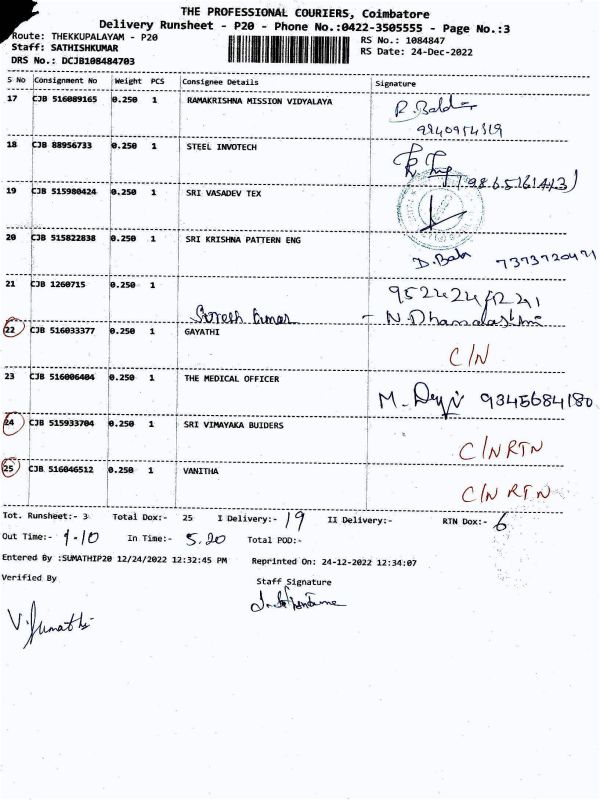 THE PROFESSIONAL COURIERS, Coimbatore
Delivery Runsheet - P20 - Phone No.:0422-3505555 - Page No.:3
Route: THEKKUPALAYAM - P20
RS No.: 1084847
Staff: SATHISHKUMAR
RS Date: 24-Dec-2022
DRS No.: DCJB108484703
S No Consignment No Weight PCS Consignee Details Signature
17 CJB 516089165 0.250 1 RAMAKRISHNA MISSION VIDYALAYA
9840954319
18 CJB 88956733 0.250 1 STEEL INVOTECH
19 CJB 515980424 0.250 1 SRI VASADEV TEX
20 CJB 515822838 0.250 1 SRI KRISHNA PATTERN ENG
D. Babu 7373720471
21 CJB 1260715 0.250 1
Suresh Kumar - N. Dhanalakshmi
22 CJB 516033377 0.250 1 GAYATHI
C/N
23 CJB 516006404 0.250 1 THE MEDICAL OFFICER
M. Devi 9345684180
24 CJB 515933704 0.250 1 SRI VIMAYAKA BUIDERS
C/N RTN
25 CJB 516046512 0.250 1 VANITHA
C/N RTN
Tot. Runsheet:- 3 Total Dox:- 25 I Delivery:- 19 II Delivery:- RTN Dox:- 6
Out Time:- 1-10 In Time:- 5.20 Total POD:-
Entered By :SUMATHIP20 12/24/2022 12:32:45 PM Reprinted On: 24-12-2022 12:34:07
Verified By Staff Signature
V. Sumathi